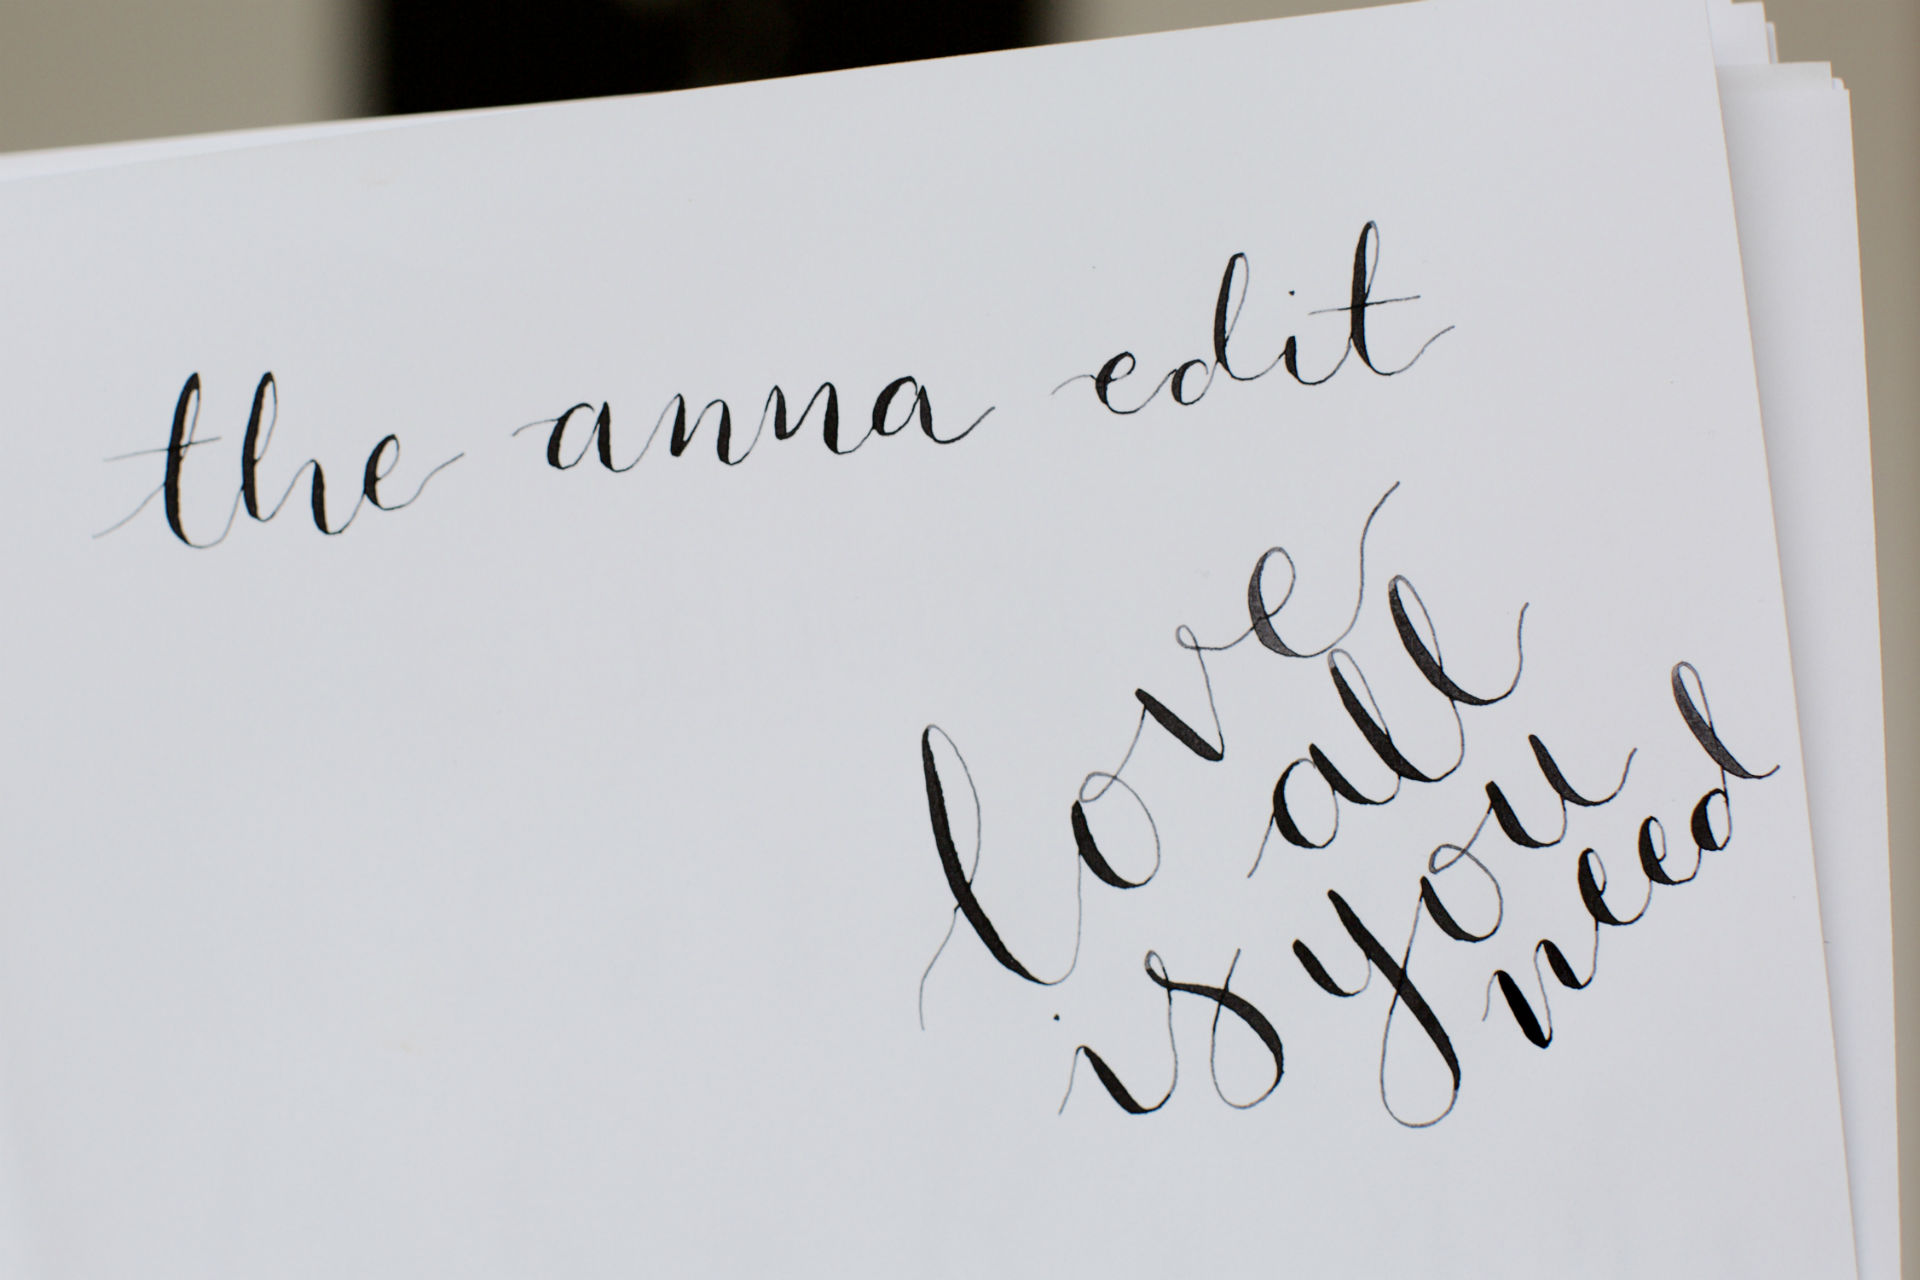 the anna edit
love
all
is you
need